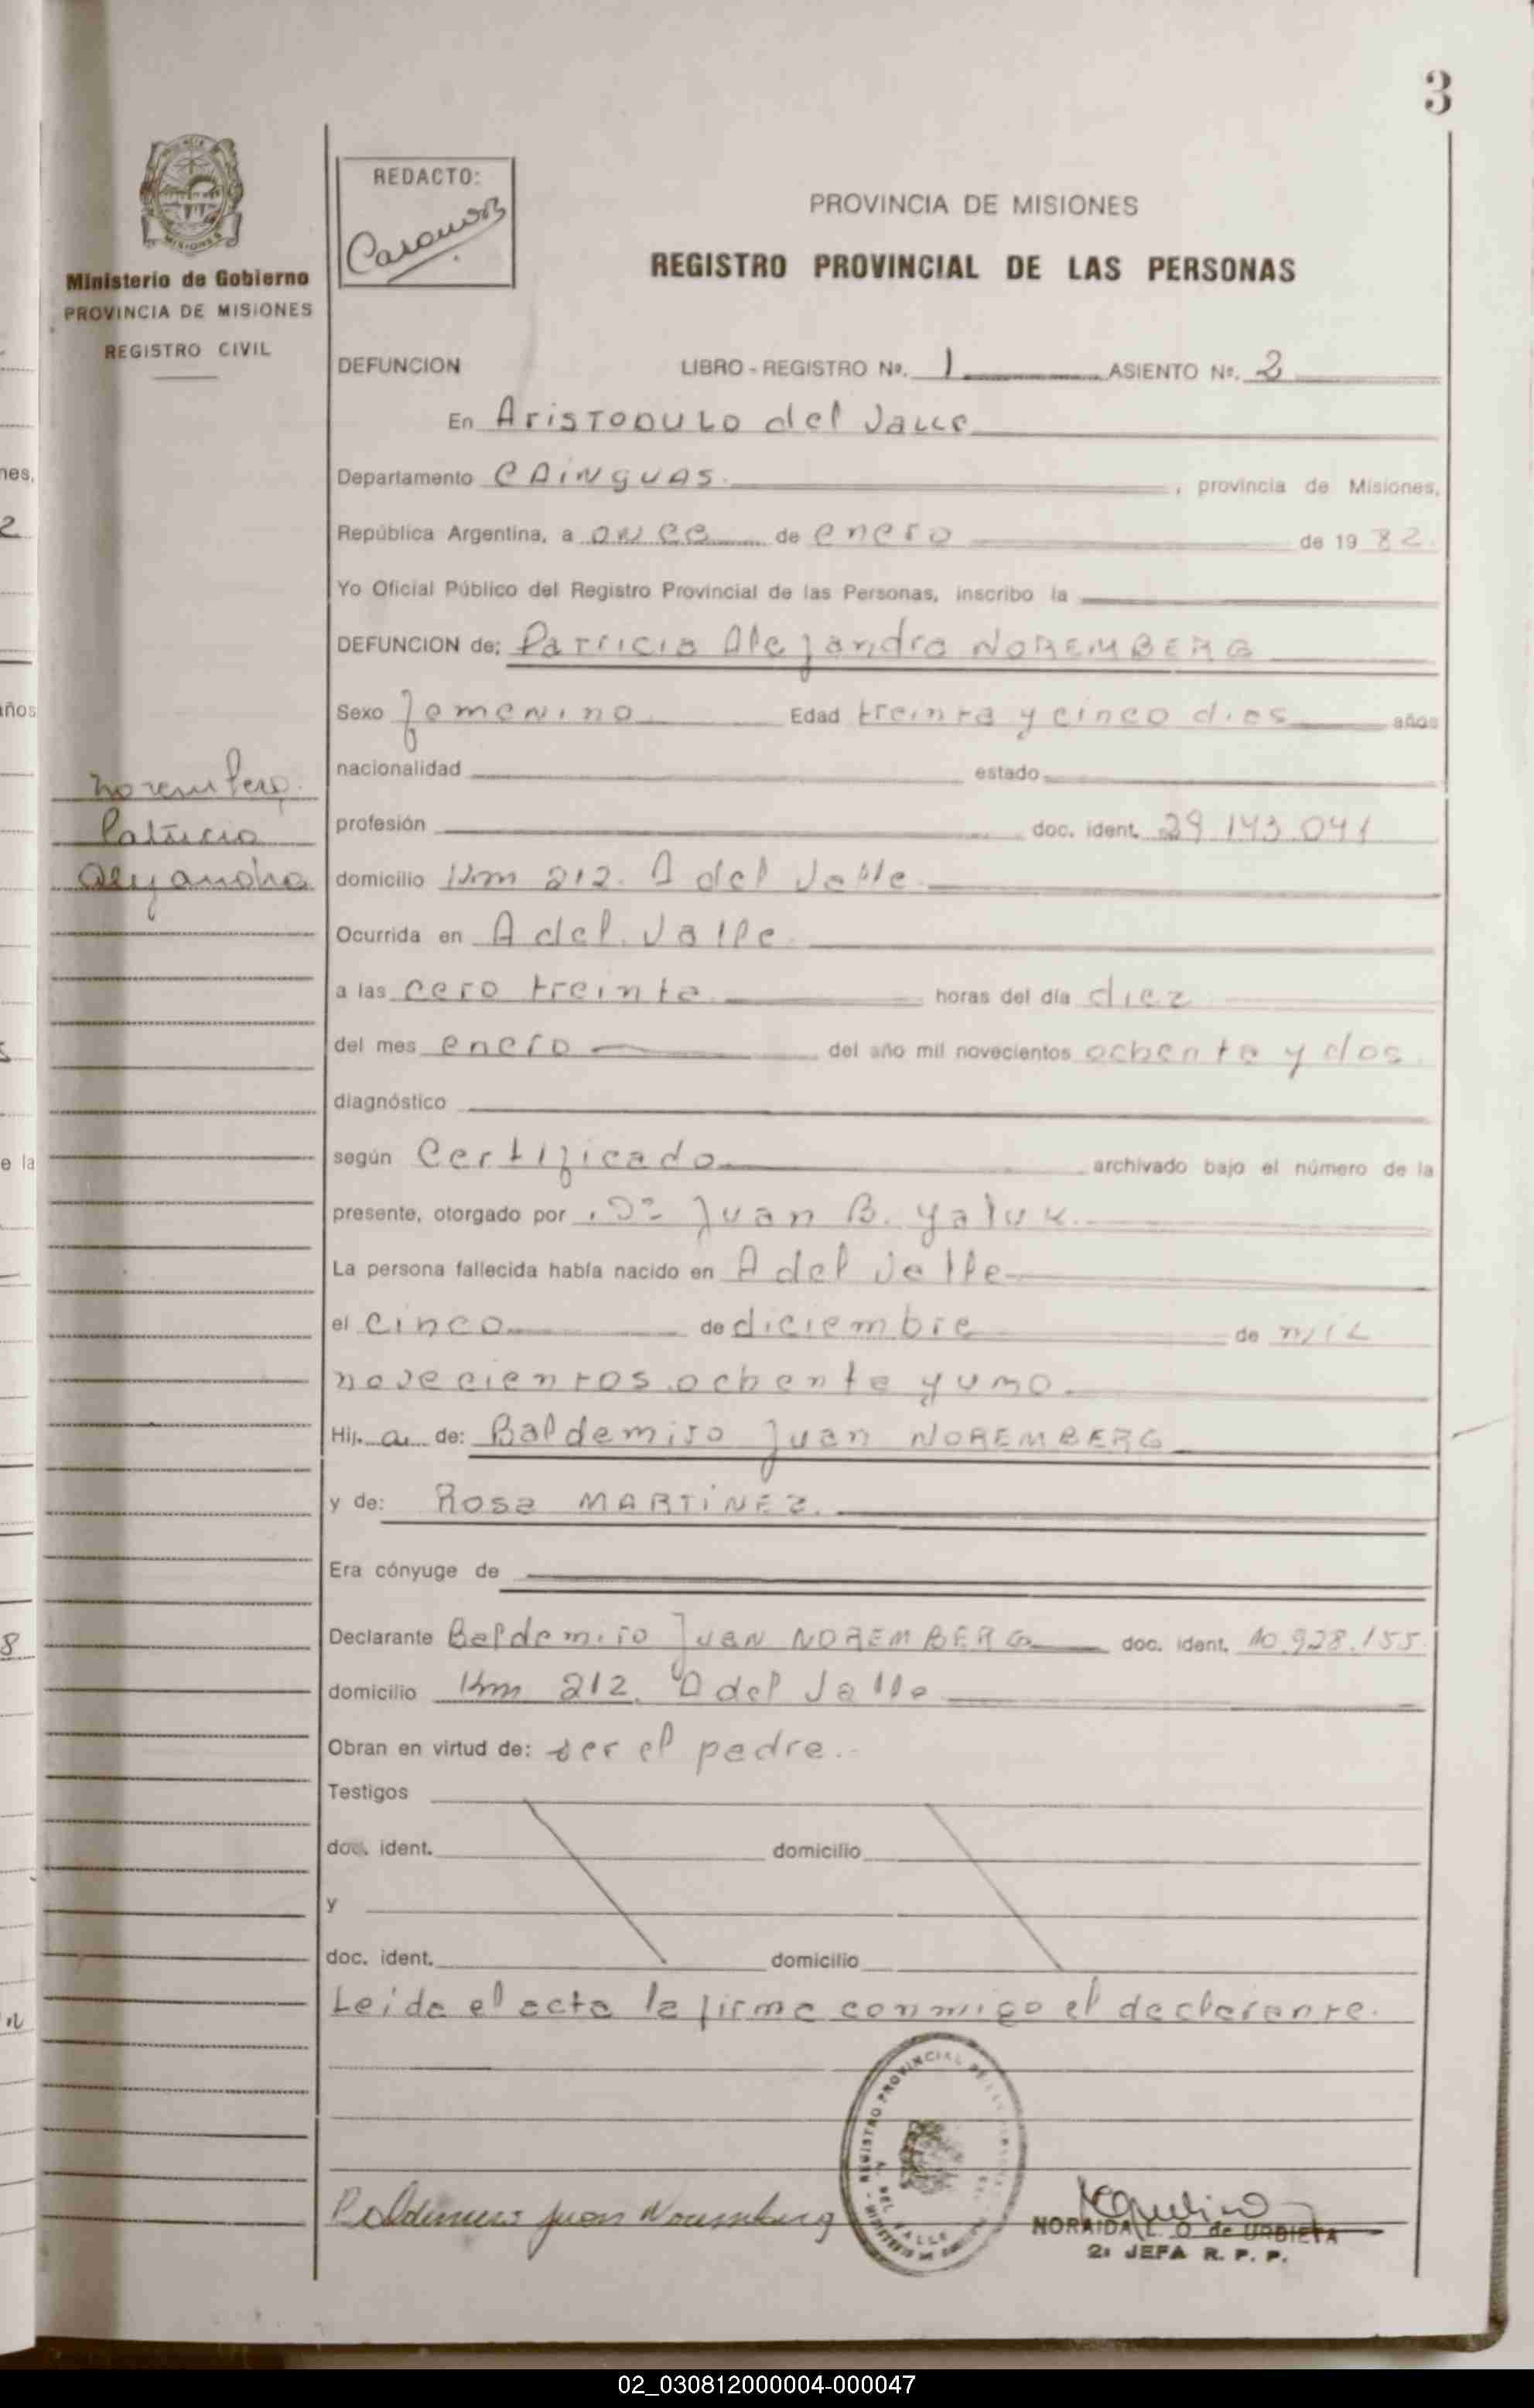 3
Ministerio de Gobierno
PROVINCIA DE MISIONES
REGISTRO CIVIL
REDACTO:
PROVINCIA DE MISIONES
REGISTRO PROVINCIAL DE LAS PERSONAS
DEFUNCION LIBRO - REGISTRO Nº. 1 ASIENTO Nº. 2
En ARISTOBULO del Valle
Departamento CAINGUAS , provincia de Misiones,
República Argentina, a once de enero de 19 82.
Yo Oficial Público del Registro Provincial de las Personas, inscribo la
DEFUNCION de: Patricia Alejandra NOREMBERG
Sexo femenino Edad treinta y cinco dias años
nacionalidad estado
Noremberg
Patricia
Alejandra
profesión doc. ident. 29.143.041
domicilio Km 212. A del Valle
Ocurrida en A del Valle
a las cero treinta horas del día diez
del mes enero del año mil novecientos ochenta y dos.
diagnóstico
según Certificado archivado bajo el número de la
presente, otorgado por Dr Juan B. Yaluk.
La persona fallecida había nacido en A del Valle
el cinco de diciembre de mil
novecientos ochenta y uno.
Hij a de: Baldemiro Juan NOREMBERG
y de: Rosa MARTINEZ.
Era cónyuge de
Declarante Baldemiro Juan NOREMBERG doc. ident. 10.928.155.
domicilio Km 212. A del Valle
Obran en virtud de: ser el padre.
Testigos
doc. ident. domicilio
y
doc. ident. domicilio
Leida el acta la firma conmigo el declarante.
REGISTRO PROVINCIAL DE LAS PERSONAS
A. DEL VALLE
Baldemiro Juan Noremberg
NORAIDA L. O. de URBIETA
2: JEFA R. P. P.
02_030812000004-000047